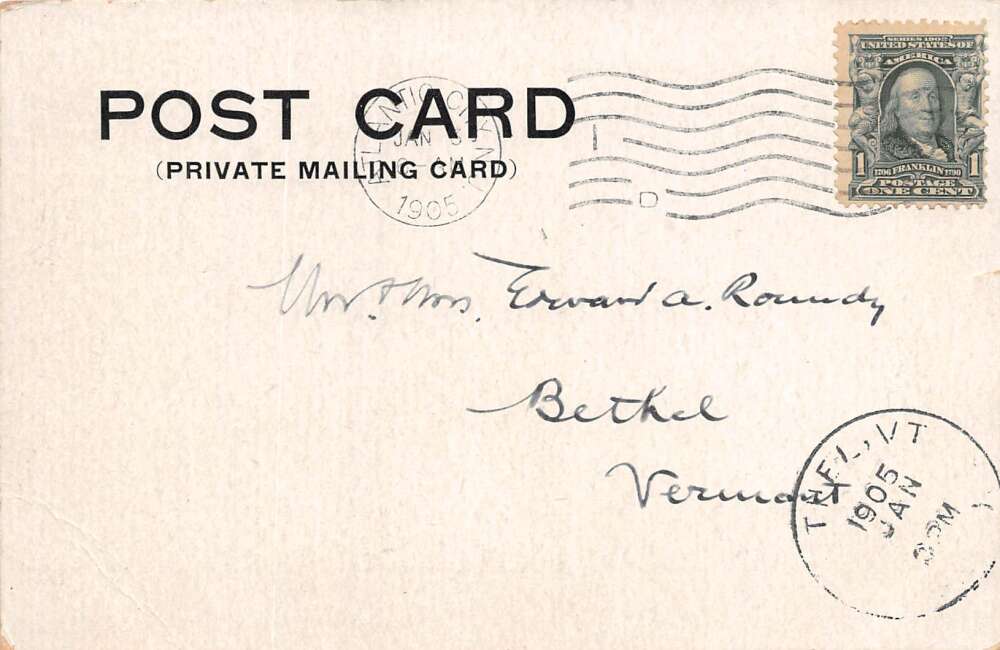 POST CARD
(PRIVATE MAILING CARD)
ATLANTIC CITY, N.J.
JAN
1905
D
SERIES 1902
UNITED STATES OF
AMERICA
1 1706 FRANKLIN 1790 1
POSTAGE
ONE CENT
Mr. & Mrs. Edward A. Roundy
Bethel
Vermont
THEL, VT
1905
JAN
PM